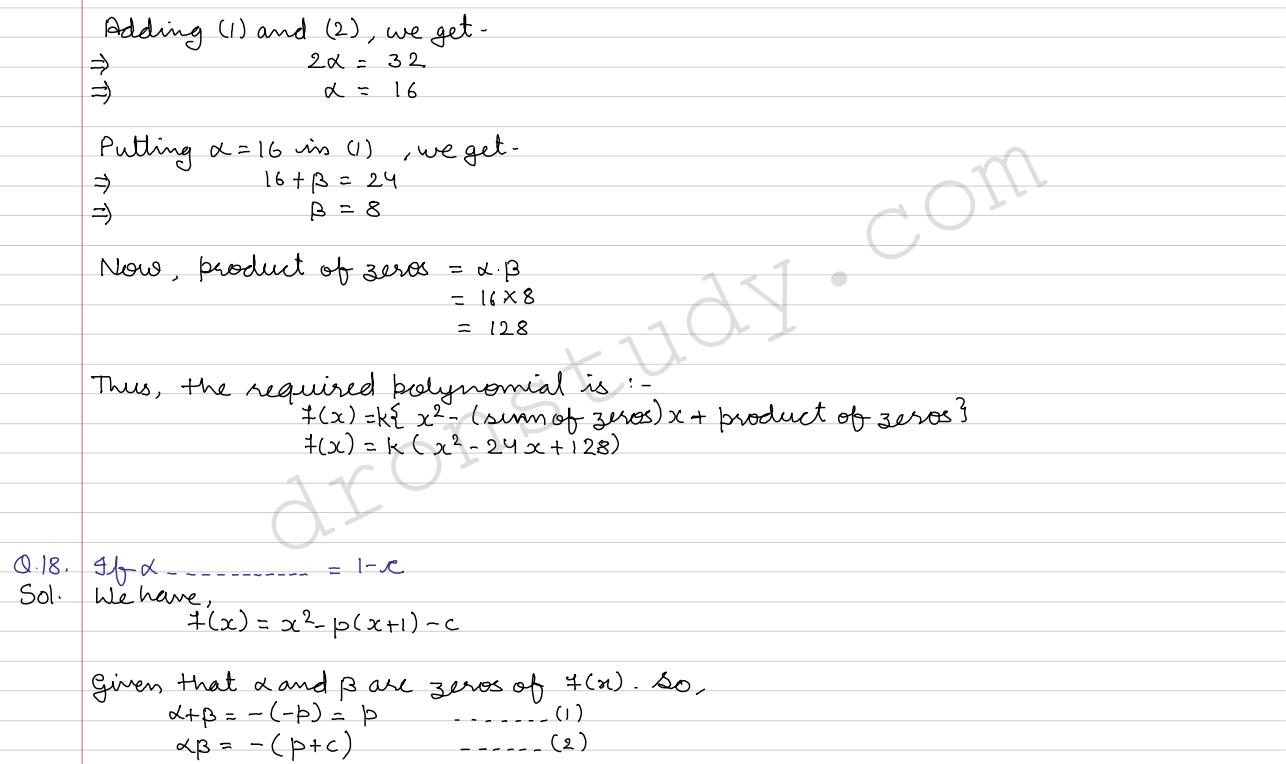 Adding (1) and (2), we get-
⇒ 2α = 32
⇒ α = 16
Putting α=16 in (1) , we get-
⇒ 16+β = 24
⇒ β = 8
Now, product of zeros = α.β
= 16×8
= 128
Thus, the required polynomial is :-
f(x) =k{ x²- (sum of zeros)x + product of zeros}
f(x) = k ( x²- 24x+128)
dronstudy.com
Q.18. If α ------------ = 1-c
Sol. We have,
f(x) = x²- p(x+1) -c
Given that α and β are zeros of f(x). So,
α+β = -(-p) = p -------(1)
αβ = -(p+c) ------(2)